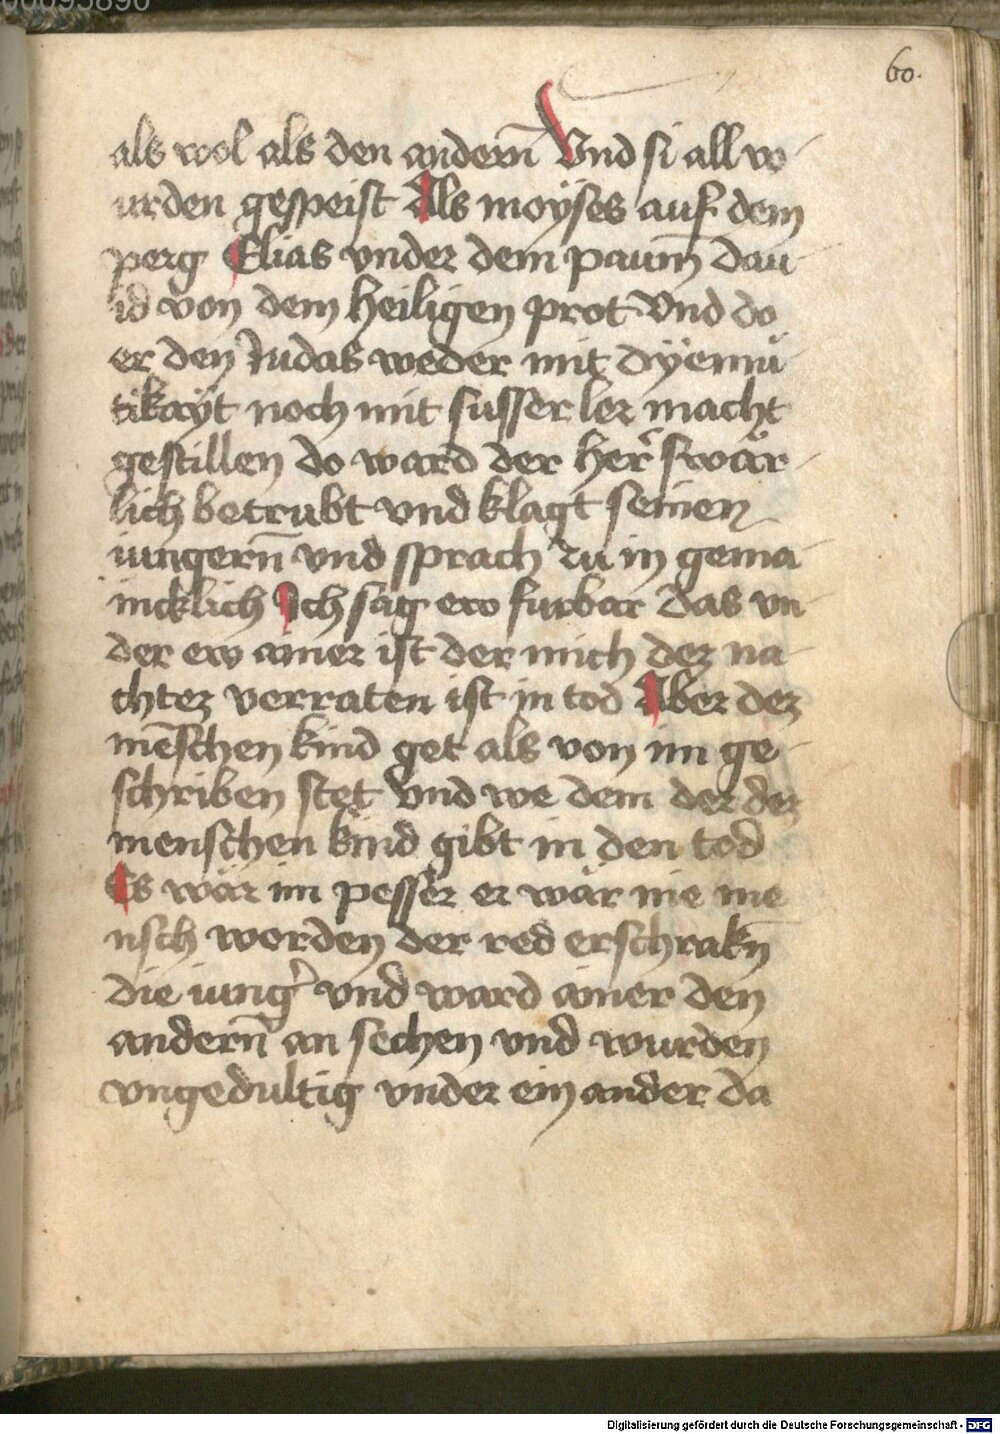 60.
als wol als den andern̄ Vnd si all w-
urden gespeist Als moÿses auf dem
perg Elias vnder dem paum̄ dau-
id von dem heiligen prot Vnd do
er den Judas weder mit dÿemu-
tikaÿt noch mit susser ler macht
gestillen do ward der her̄ swär-
lich betrubt vnd klagt seinen
iungern̄ vnd sprach zu in gema-
incklich Ich sag ew furbar das vn-
der ew ainer ist der mich der na-
chter verraten ist in tod Aber dez
mēschen kind get als von im ge-
schriben stet Vnd we dem der dez
menschen kind gibt in den tod
Es wär im pesser er wär nie me
nsch worden der red erschrakn̄
die iung̉ vnd ward ainer den
andern̄ an sechen vnd wurden
vngedultig vnder ein ander da
Digitalisierung gefördert durch die Deutsche Forschungsgemeinschaft - DFG